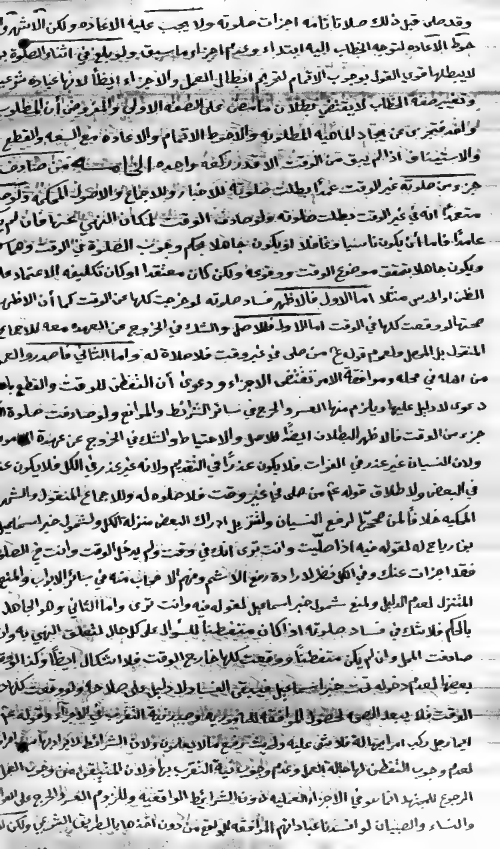 وقد صلى قبل ذلك صلاة تامة اجزأت صلوته ولا يجب عليه الاعادة ولكن الاشهر
حوط الاعادة لتوجه الخطاب اليه ابتداء وعدم اجزاء ما سبق ولو بلغ في اثناء الصلوة
لا يبطلها قوي القول بوجوب الاتمام لتحريم ابطال العمل والاجزاء ايضا لانها عبادة شرعية
وتغيير صفة الخطاب لا يقتضي بطلان ما مضى على الصفة الاولى والمفروض أن المطلوب
واحد فتجزي عن ايجاد الماهية المطلوبة والاحوط الاتمام والاعادة مع السعة والقطع
والاستيناف اذا لم يبق من الوقت الا قدر ركعة واحدة
جزء من صلوته غير الوقت عمدا بطلت صلوته للاخبار وللاجماع والاصول المحكمة ولو
متعمدا انه في غير الوقت بطلت صلوته ولو صادف الوقت لمكان النهي عنها فان لم
عامدا فاما أن يكون ناسيا وغافلا او يكون جاهلا بحكم وجوب الصلوة في الوقت
ويكون جاهلا بتحقق موضوع الوقت ووقوعه ولكن كان معتقدا او كان تكليفه الاعتماد على
الظن او الحدس مثلا اما الاول فالاظهر فساد صلوته لو خرجت كلها عن الوقت كما أن الاظهر
صحتها لو وقعت كلها في الوقت اما الاول فللاصل والشك في الخروج عن العهدة معه للاجماع
المنقول بل المحصل ولعموم قوله من صلى في غير وقت فلا صلاة له واما الثاني فلصدور العمل
من اهله في محله وموافقة الامر تقتضي الاجزاء ودعوى أن التفطن للوقت والقطع
دعوى لا دليل عليها ويلزم منها العسر والحرج في سائر الشرائط والموانع ولو صادفت صلوة
جزء من الوقت فالاظهر البطلان ايضا للاصل والاحتياط والشك في الخروج عن عهدة
ولان النسيان غير عذر في الفوات فلا يكون عذرا في التقديم ولانه غير عذر في الكل فلا يكون
في البعض ولاطلاق قوله من صلى في غير وقت فلا صلوة له وللاجماع المنقول والشهرة
المحكية خلافا لمن صححها لرفع النسيان ولتنزيل ادراك البعض منزلة الكل ولشمول خبر اسماعيل
بن رباح له لقوله فيه اذا صليت وانت ترى انك في وقت ولم يدخل الوقت وانت في الصلوة
فقد اجزأت عنك وفي الكل نظر لارادة رفع الاثم
المنزل لعدم الدليل ولمنع شمول خبر اسماعيل لقوله فيه وانت ترى واما الثاني وهو الجاهل
بالحكم فلا شك في فساد صلوته اذا كان متفطنا للسؤال على كل حال لتعلق النهي به
صادفت المحل وان لم يكن متفطنا ووقعت كلها خارج الوقت فلا اشكال ايضا وكذا
بعضها لعدم دخوله تحت خبر اسماعيل فيبقى الفساد لا دليل على صلاحها ولو وقعت كلها
الوقت فلا يبعد الصحة لحصول الموافقة للمأمور به وحصول نية التقرب في الاجزاء ولقوله
ايما رجل ركب امرا بجهالة فلا شئ عليه ولحديث رفع ما لا يعلمون ولان الشرائط
لعدم وجوب التفطن لها حالة العمل وعدم وجوب نية التقرب بها ولان المتيقن من وجوب العمل
الرجوع للمجتهد انما هو في الاجزاء العملية دون الشرائط الواقعية وللزوم العسر والحرج على
والنساء والصبيان لو افسدنا عباداتهم الموافقة للواقع من دون اخذها بالطريق الشرعي ولكن